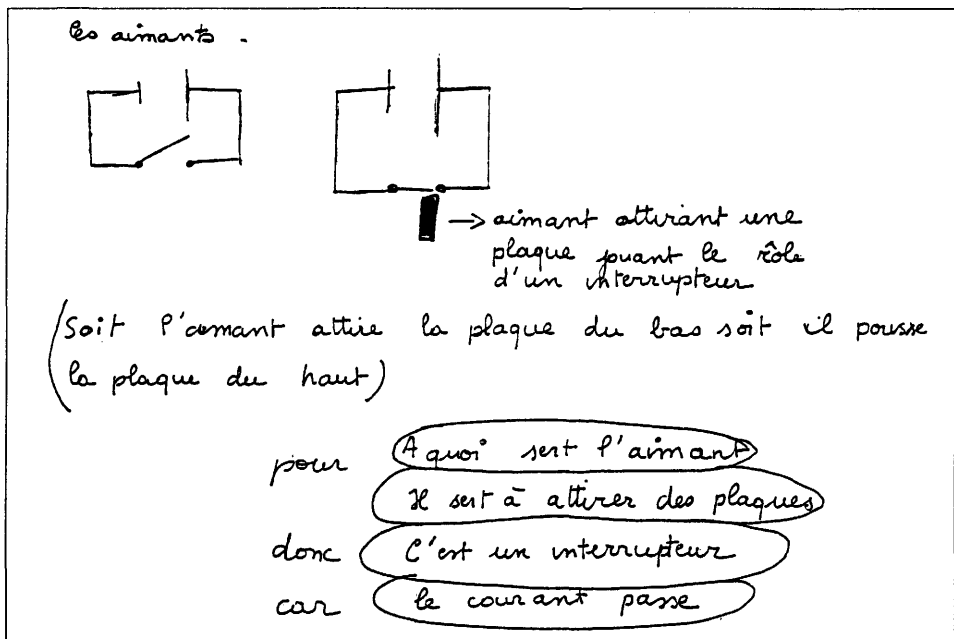 les aimants.
→ aimant attirant une
plaque jouant le rôle
d'un interrupteur
(Soit l'aimant attire la plaque du bas soit il pousse
la plaque du haut)
pour A quoi sert l'aimant
Il sert à attirer des plaques
donc C'est un interrupteur
car le courant passe